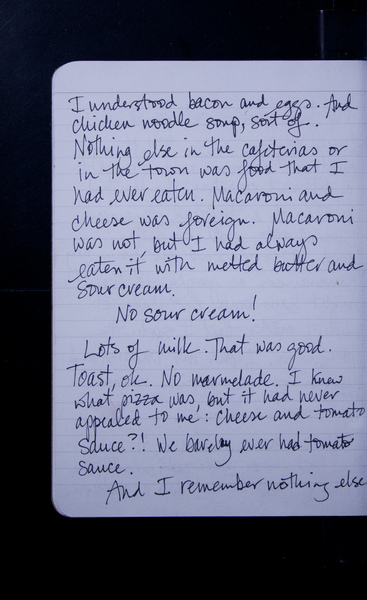 I understood bacon and eggs. And
chicken noodle soup, sort of.
Nothing else in the cafeterias or
in the town was food that I
had ever eaten. Macaroni and
cheese was foreign. Macaroni
was not, but I had always
eaten it with melted butter and
sour cream.
No sour cream!
Lots of milk. That was good.
Toast, ok. No marmelade. I knew
what pizza was, but it had never
appealed to me: cheese and tomato
sauce?! We barelay ever had tomato
sauce.
And I remember nothing else